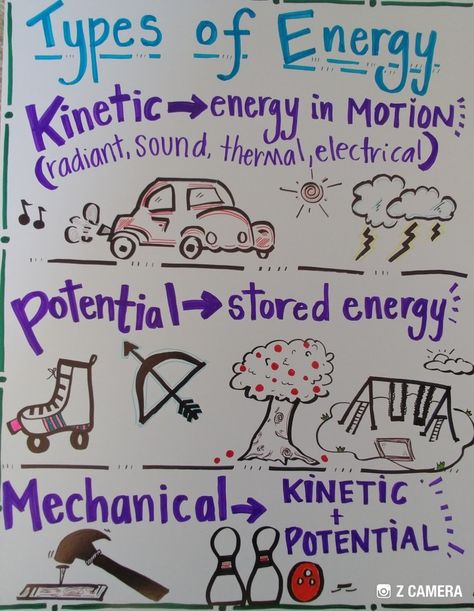 Types of Energy
Kinetic → energy in MOTION
(radiant, sound, thermal, electrical)
Potential → stored energy
Mechanical → KINETIC
+
POTENTIAL
Z CAMERA